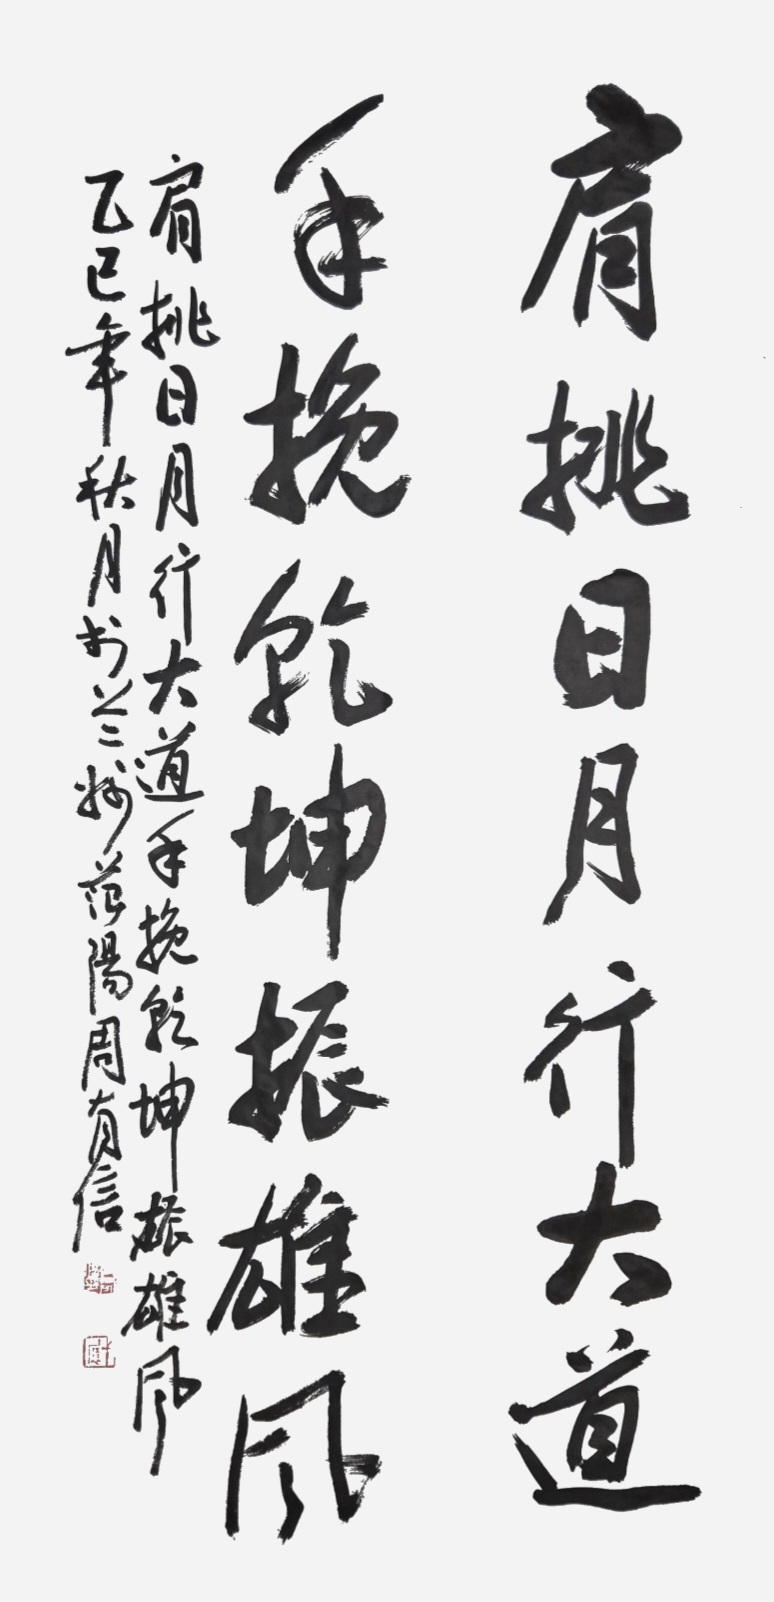 肩挑日月行大道
手挽乾坤振雄风
肩挑日月行大道手挽乾坤振雄风
乙巳年秋月於兰州范陽周有信